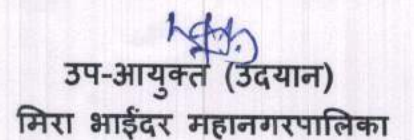 उप-आयुक्त (उदयान)
मिरा भाईंदर महानगरपालिका